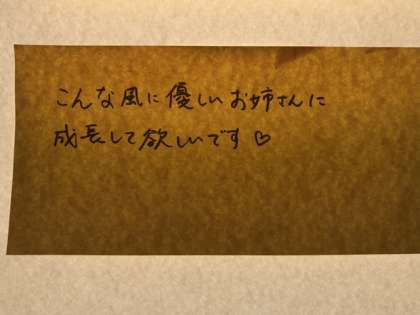 こんな風に優しいお姉さんに
成長して欲しいです♡